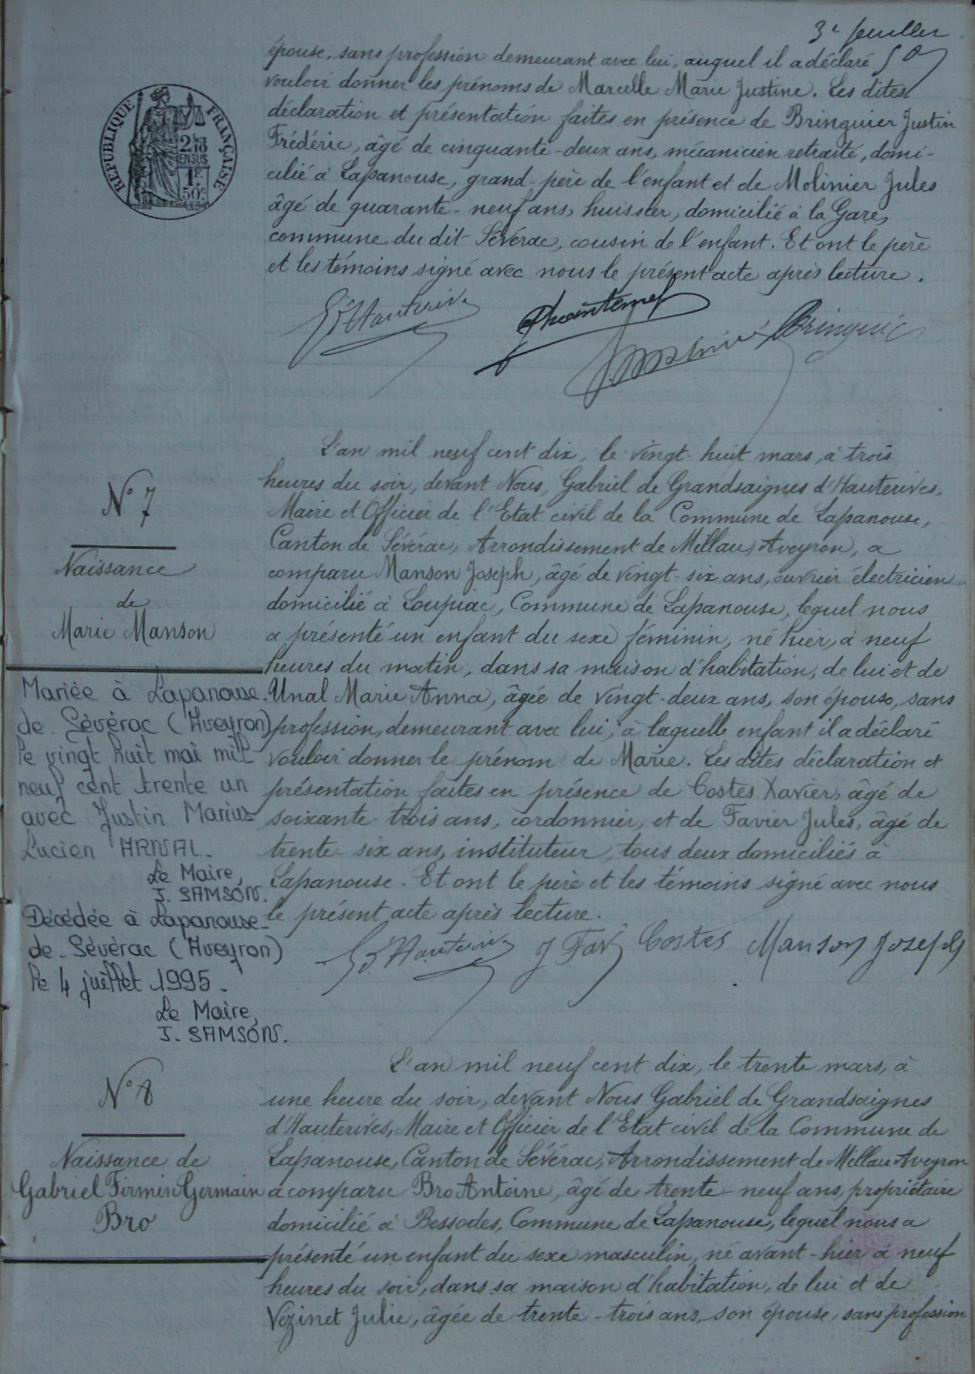 3e feuillet
épouse, sans profession demeurant avec lui, auquel il a déclaré
vouloir donner les prénoms de Marcelle Marie Justine. Les dites
déclaration et présentation faites en présence de Bringuier Justin
Frédéric, âgé de cinquante-deux ans, mécanicien retraité, domi-
cilié à Lapanouse, grand-père de l'enfant et de Molinier Jules
âgé de quarante-neuf ans, huissier, domicilié à la Gare,
commune du dit Sévérac, cousin de l'enfant. Et ont le père
et les témoins signé avec nous le présent acte après lecture.
RÉPUBLIQUE FRANÇAISE
2/10
EN SUS
1F
50c
G d'Hauterives
Bringuier
N° 7
Naissance
de
Marie Manson
L'an mil neuf cent dix, le vingt-huit mars, à trois
heures du soir, devant Nous, Gabriel de Grandsaignes d'Hauterives,
Maire et Officier de l'Etat civil de la Commune de Lapanouse,
Canton de Sévérac, Arrondissement de Millau, Aveyron, a
comparu Manson Joseph, âgé de vingt-six ans, ouvrier électricien
domicilié à Loupiac, Commune de Lapanouse, lequel nous
a présenté un enfant du sexe féminin, né hier, à neuf
heures du matin, dans sa maison d'habitation, de lui et de
Unal Marie Anna, âgée de vingt-deux ans, son épouse, sans
profession, demeurant avec lui, à laquelle enfant il a déclaré
vouloir donner le prénom de Marie. Les dites déclaration et
présentation faites en présence de Costes Xavier, âgé de
soixante-trois ans, cordonnier, et de Favier Jules, âgé de
trente-six ans, instituteur, tous deux domiciliés à
Lapanouse. Et ont le père et les témoins signé avec nous
le présent acte après lecture.
G d'Hauterives J Fav Costes Manson Joseph
Mariée à Lapanouse-
de Sévérac (Aveyron)
le vingt huit mai mil
neuf cent trente un
avec Justin Marius
Lucien ARNAL.
Le Maire,
J. SAMSON.
Décédée à Lapanouse-
de-Sévérac (Aveyron)
le 4 juillet 1995.
Le Maire,
J. SAMSON.
N° 8
Naissance de
Gabriel Firmin Germain
Bro
L'an mil neuf cent dix, le trente mars, à
une heure du soir, devant Nous Gabriel de Grandsaignes
d'Hauterives, Maire et Officier de l'Etat civil de la Commune de
Lapanouse, Canton de Sévérac, Arrondissement de Millau Aveyron
a comparu Bro Antoine, âgé de trente-neuf ans, propriétaire
domicilié à Bessodes, Commune de Lapanouse, lequel nous a
présenté un enfant du sexe masculin, né avant-hier à neuf
heures du soir, dans sa maison d'habitation, de lui et de
Vezinet Julie, âgée de trente-trois ans, son épouse, sans profession